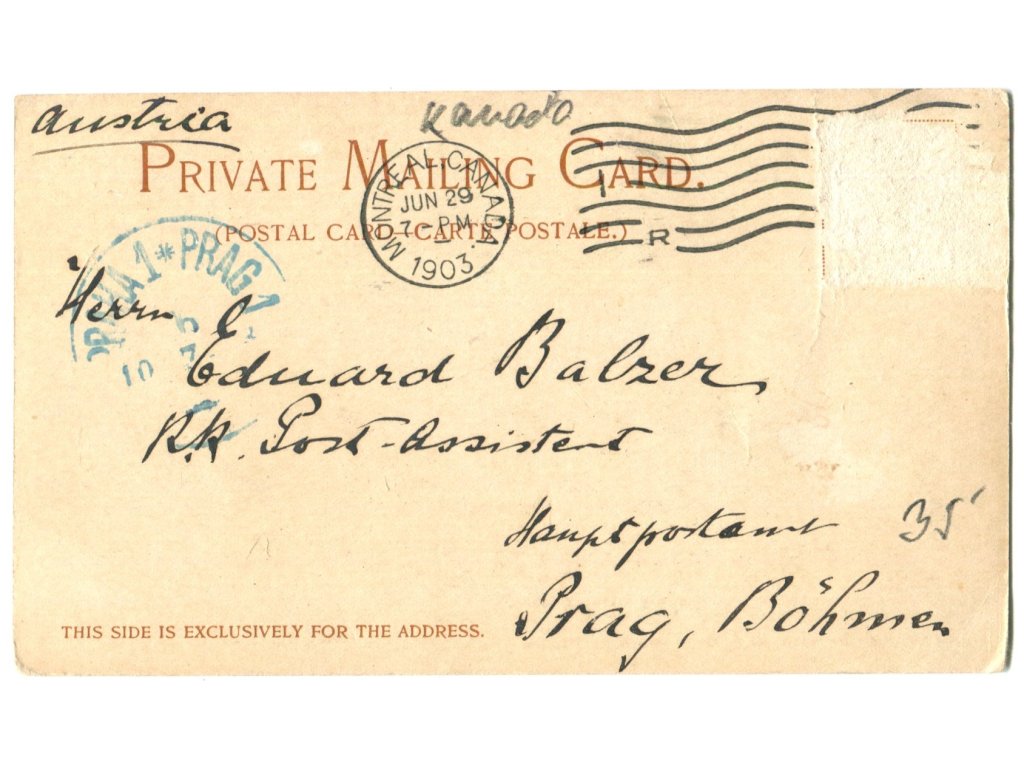 Austria
Kanada
PRIVATE MAILING CARD.
(POSTAL CARD-CARTE POSTALE.)
MONTREAL, CANADA.
JUN 29
7 - PM
1903
1
R
PRAHA 1 * PRAG 1
Herrn
Eduard Balzer,
K.K. Post-Assistent
Hauptpostamt
35
Prag, Böhmen
THIS SIDE IS EXCLUSIVELY FOR THE ADDRESS.